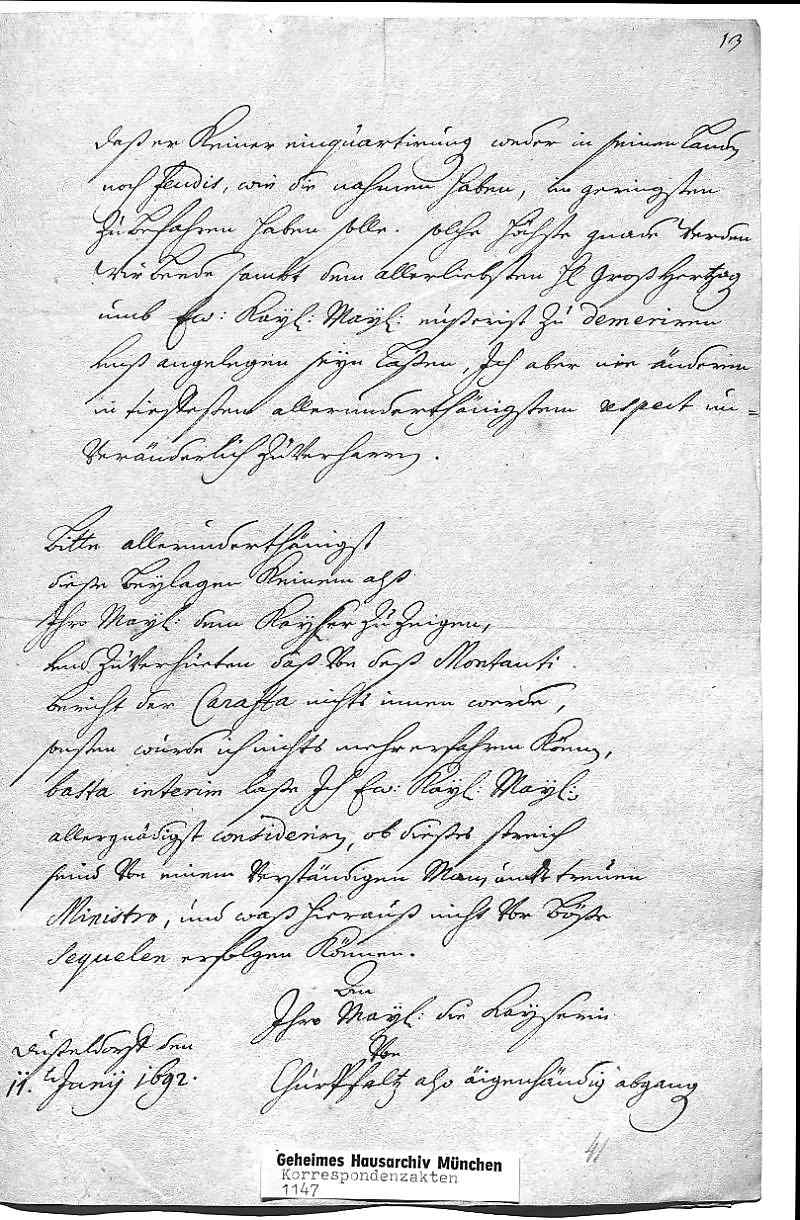 13
daß er Keiner einquartirung weder in seinen Landen
noch feudis, wie die nahmen haben, im geringsten
Zu befahren haben solle. solche höchste gnade werden
Wir beede sambt dem allerliebsten H Großhertzog
umb Ew: Kayl: Mayl: eußerist Zu demeriren
unß angelegen seyn Laßen, Ich aber nie änderen
in tieffesten allerunderthänigstem respect un=
Veränderlich Zu Verharren.
Bitte allerunderthänigst
diese beylagen Keinem alß
Ihro Mayl: dem Kayser Zu Zeigen,
und Zu Verhüeten daß Von deß Montanti
bericht der Caraffa nichts innen werde,
sonsten würde ich nichts mehr erfahren Können,
basta interim laße Ich Ew: Kayl: Mayl:
allergnädigst consideriren, ob dießes streich
seind Von einem Verständigen Man, undt treuen
Ministro, und waß hierauß nicht Vor böße
Sequelen erfolgen Können.
An
Ihro Mayl: die Kayserin
Düsseldorff den
Von
11.t Junij 1692.
ChurPfaltz also äigenhändig abgang
41
Geheimes Hausarchiv München
Korrespondenzakten
1147